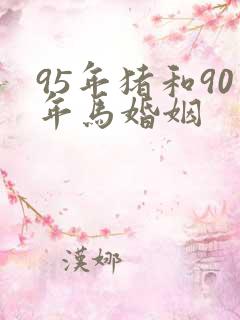 95年猪和90
年馬婚姻
漢娜